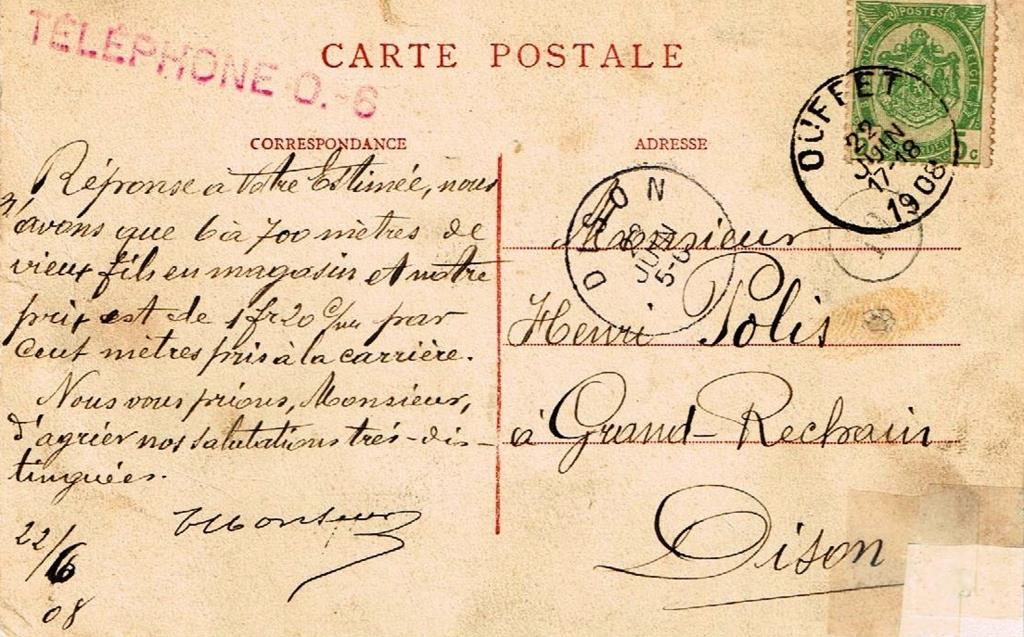 TÉLÉPHONE O.-6
CARTE POSTALE
POSTES
CORRESPONDANCE
ADRESSE
OUFFET
22
JUIN
17-18
1908
DISON
JUIN
Réponse à Votre Estimée, nous
n'avons que 6 à 700 mètres de
vieux fils en magasin et notre
prix est de 1 fr 20 par
cent mètres pris à la carrière.
Nous vous prions, Monsieur,
d'agrier nos salutations très-dis-
tinguées.
22/6
08
Monsieur
Henri Polis
à Grand-Rechain
Dison